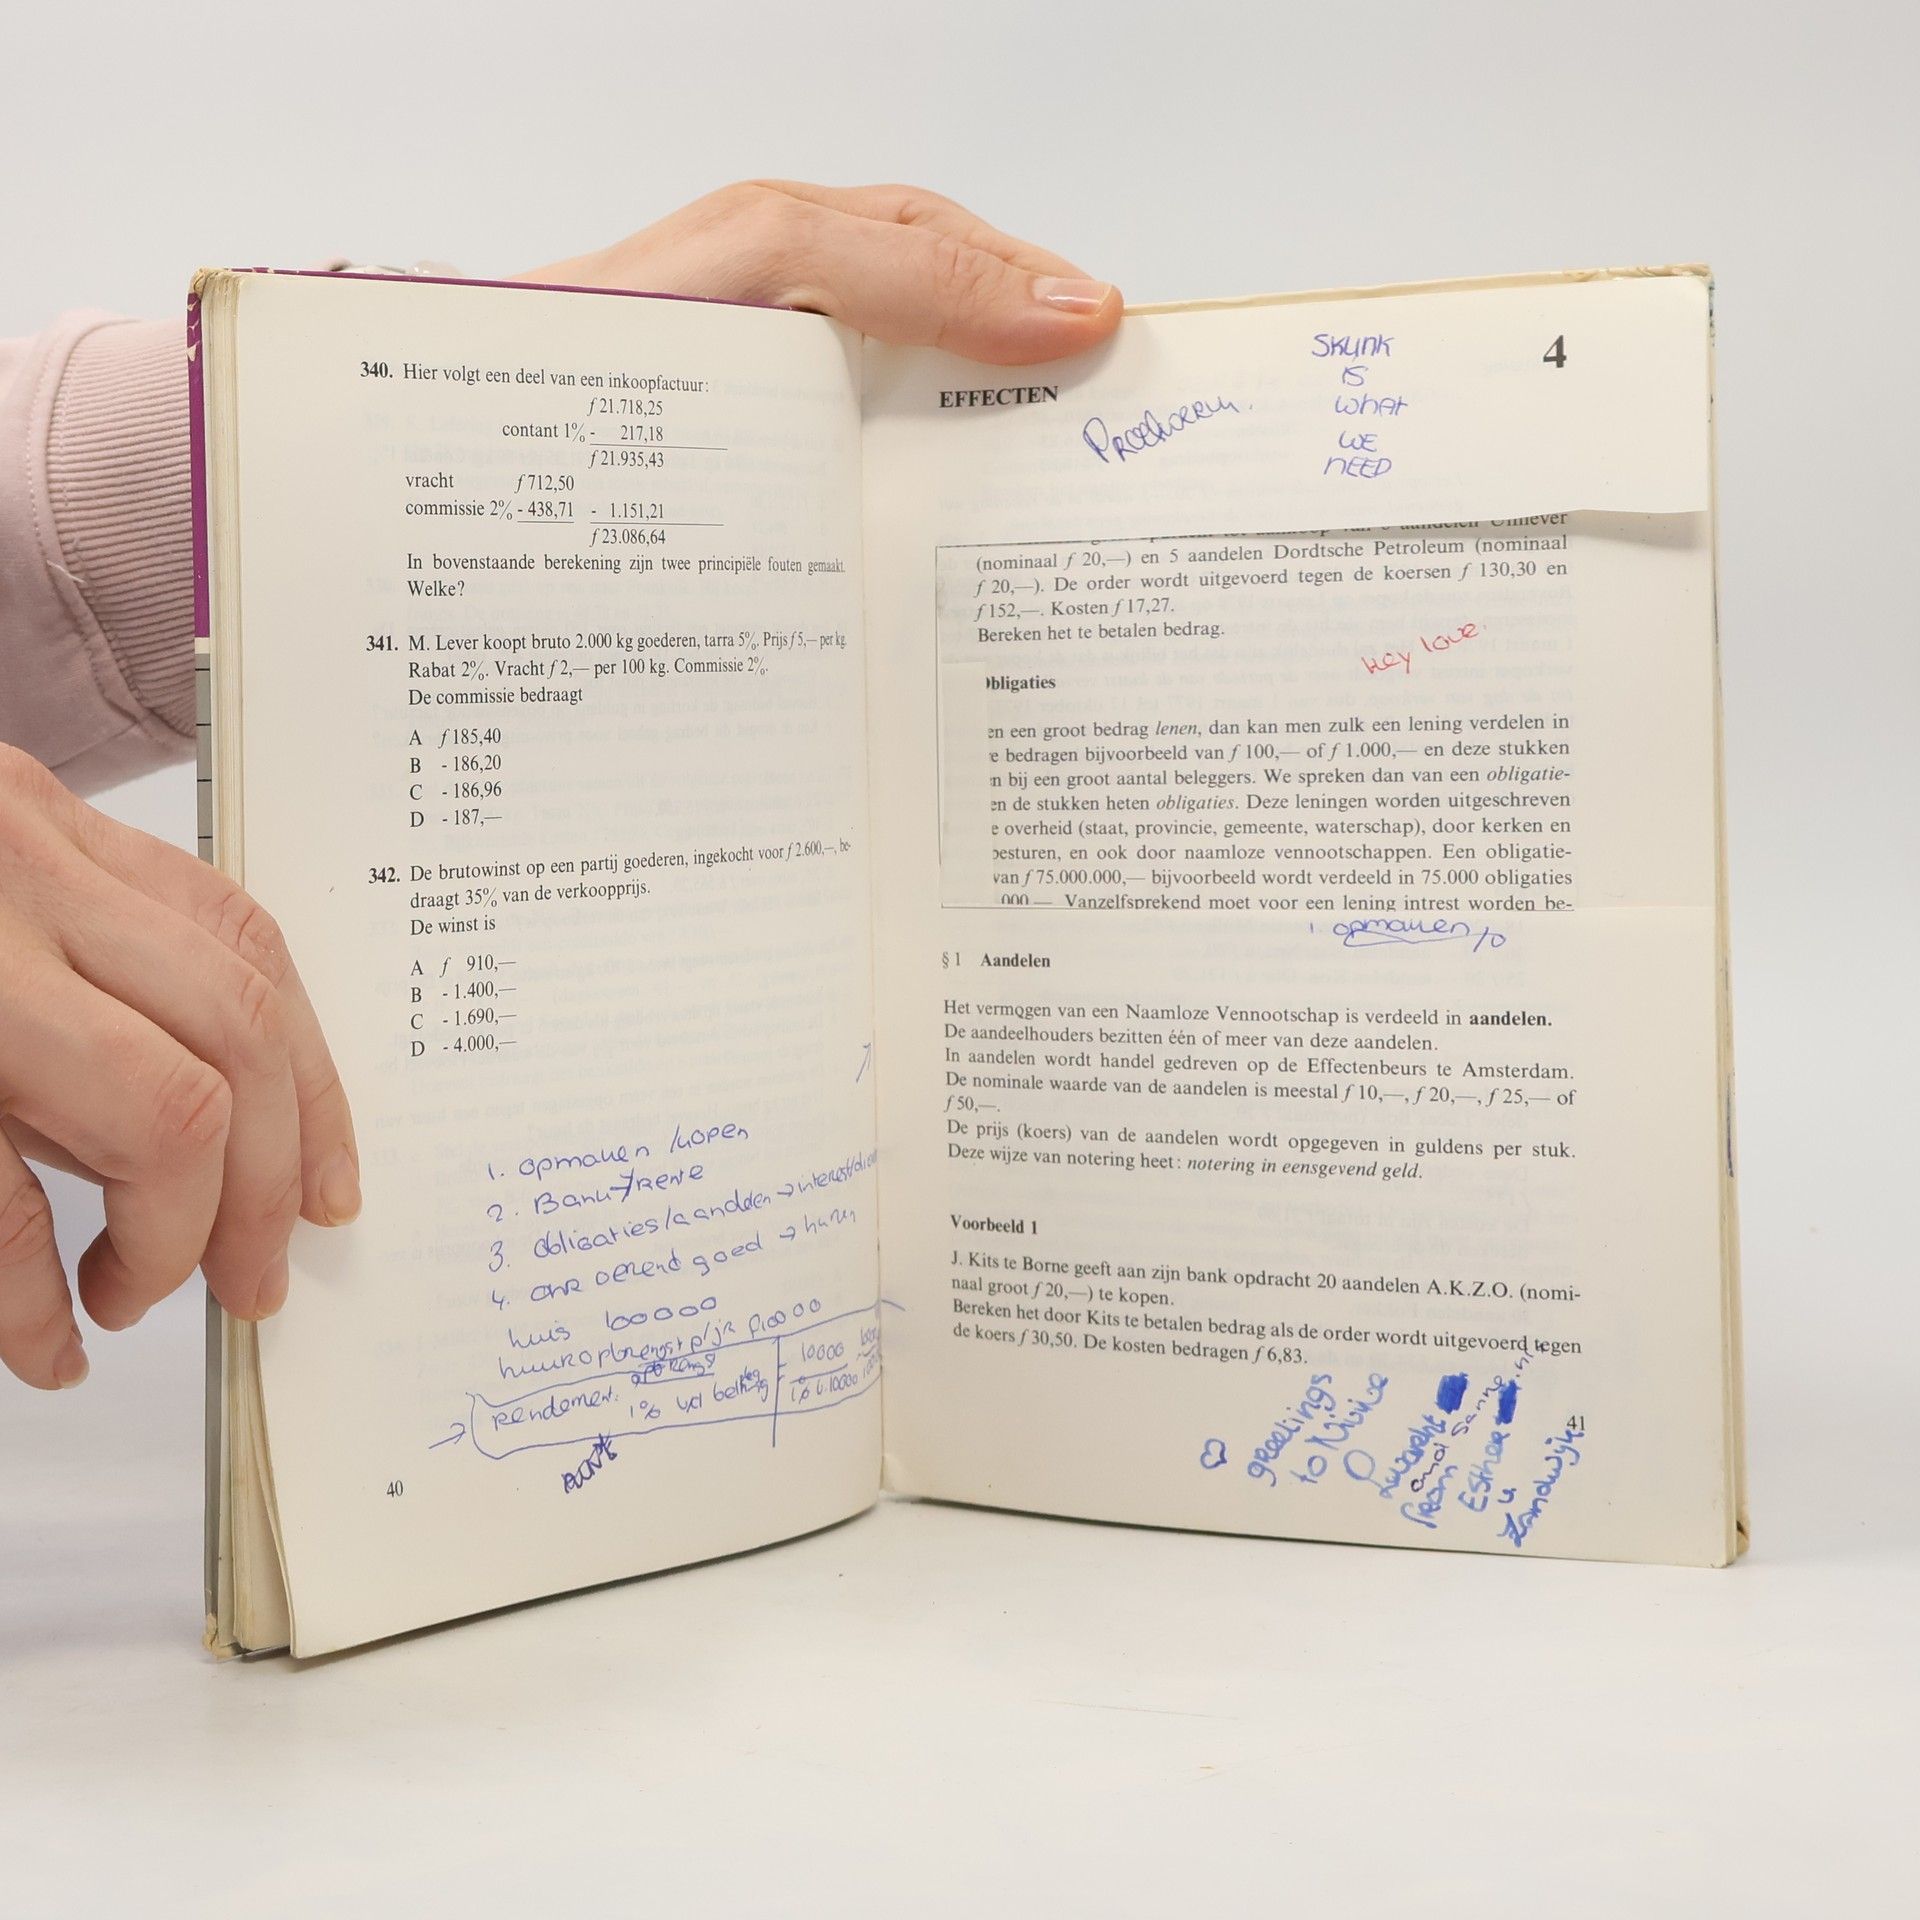 340. Hier volgt een deel van een inkoopfactuur:
f 21.718,25
contant 1% - 217,18
f 21.935,43
vracht f 712,50
commissie 2% - 438,71 - 1.151,21
f 23.086,64
In bovenstaande berekening zijn twee principiële fouten gemaakt.
Welke?
341. M. Lever koopt bruto 2.000 kg goederen, tarra 5%. Prijs f 5,— per kg.
Rabat 2%. Vracht f 2,— per 100 kg. Commissie 2%.
De commissie bedraagt
A f 185,40
B - 186,20
C - 186,96
D - 187,—
342. De brutowinst op een partij goederen, ingekocht voor f 2.600,—, be-
draagt 35% van de verkoopprijs.
De winst is
A f 910,—
B - 1.400,—
C - 1.690,—
D - 4.000,—
1. opmaken /kopen
2. Bank → Rente
3. obligaties/aandelen → interest/
4. onroerend goed → huren
huis 100000
huuropbrengst p/jr
rendement:
1% v/d
10000
40
4
EFFECTEN
SKUNK
IS
WHAT
WE
NEED
aandelen Unilever
(nominaal f 20,—) en 5 aandelen Dordtsche Petroleum (nominaal
f 20,—). De order wordt uitgevoerd tegen de koersen f 130,30 en
f 152,—. Kosten f 17,27.
Bereken het te betalen bedrag.
Hey love.
bligaties
en een groot bedrag lenen, dan kan men zulk een lening verdelen in
e bedragen bijvoorbeeld van f 100,— of f 1.000,— en deze stukken
n bij een groot aantal beleggers. We spreken dan van een obligatie-
en de stukken heten obligaties. Deze leningen worden uitgeschreven
e overheid (staat, provincie, gemeente, waterschap), door kerken en
besturen, en ook door naamloze vennootschappen. Een obligatie-
van f 75.000.000,— bijvoorbeeld wordt verdeeld in 75.000 obligaties
000,— Vanzelfsprekend moet voor een lening intrest worden be-
1. opmaken
§ 1 Aandelen
Het vermogen van een Naamloze Vennootschap is verdeeld in aandelen.
De aandeelhouders bezitten één of meer van deze aandelen.
In aandelen wordt handel gedreven op de Effectenbeurs te Amsterdam.
De nominale waarde van de aandelen is meestal f 10,—, f 20,—, f 25,— of
f 50,—.
De prijs (koers) van de aandelen wordt opgegeven in guldens per stuk.
Deze wijze van notering heet: notering in eensgevend geld.
Voorbeeld 1
J. Kits te Borne geeft aan zijn bank opdracht 20 aandelen A.K.Z.O. (nomi-
naal groot f 20,—) te kopen.
Bereken het door Kits te betalen bedrag als de order wordt uitgevoerd tegen
de koers f 30,50. De kosten bedragen f 6,83.
greetings
to
from
and Sanne
Esther
v
Zandwijk
41